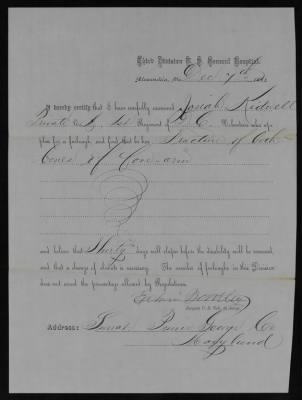 Third Division U. S. General Hospital,
Alexandria, Va. Dec 7th 186
I hereby certify that I have carefully examined Josiah Kidwell
Private Co. 1st Regiment of D. C. Volunteers who ap-
plies for a furlough, and find that he has Fracture of both
bones of fore-arm
and believe that Thirty days will elapse before the disability will be removed,
and that a change of climate is necessary. The number of furloughs in this Division
does not exceed the percentage allowed by Regulations.
Edwin Bentley
Surgeon U. S. Vols. in charge
Address: Prince George Co
Maryland